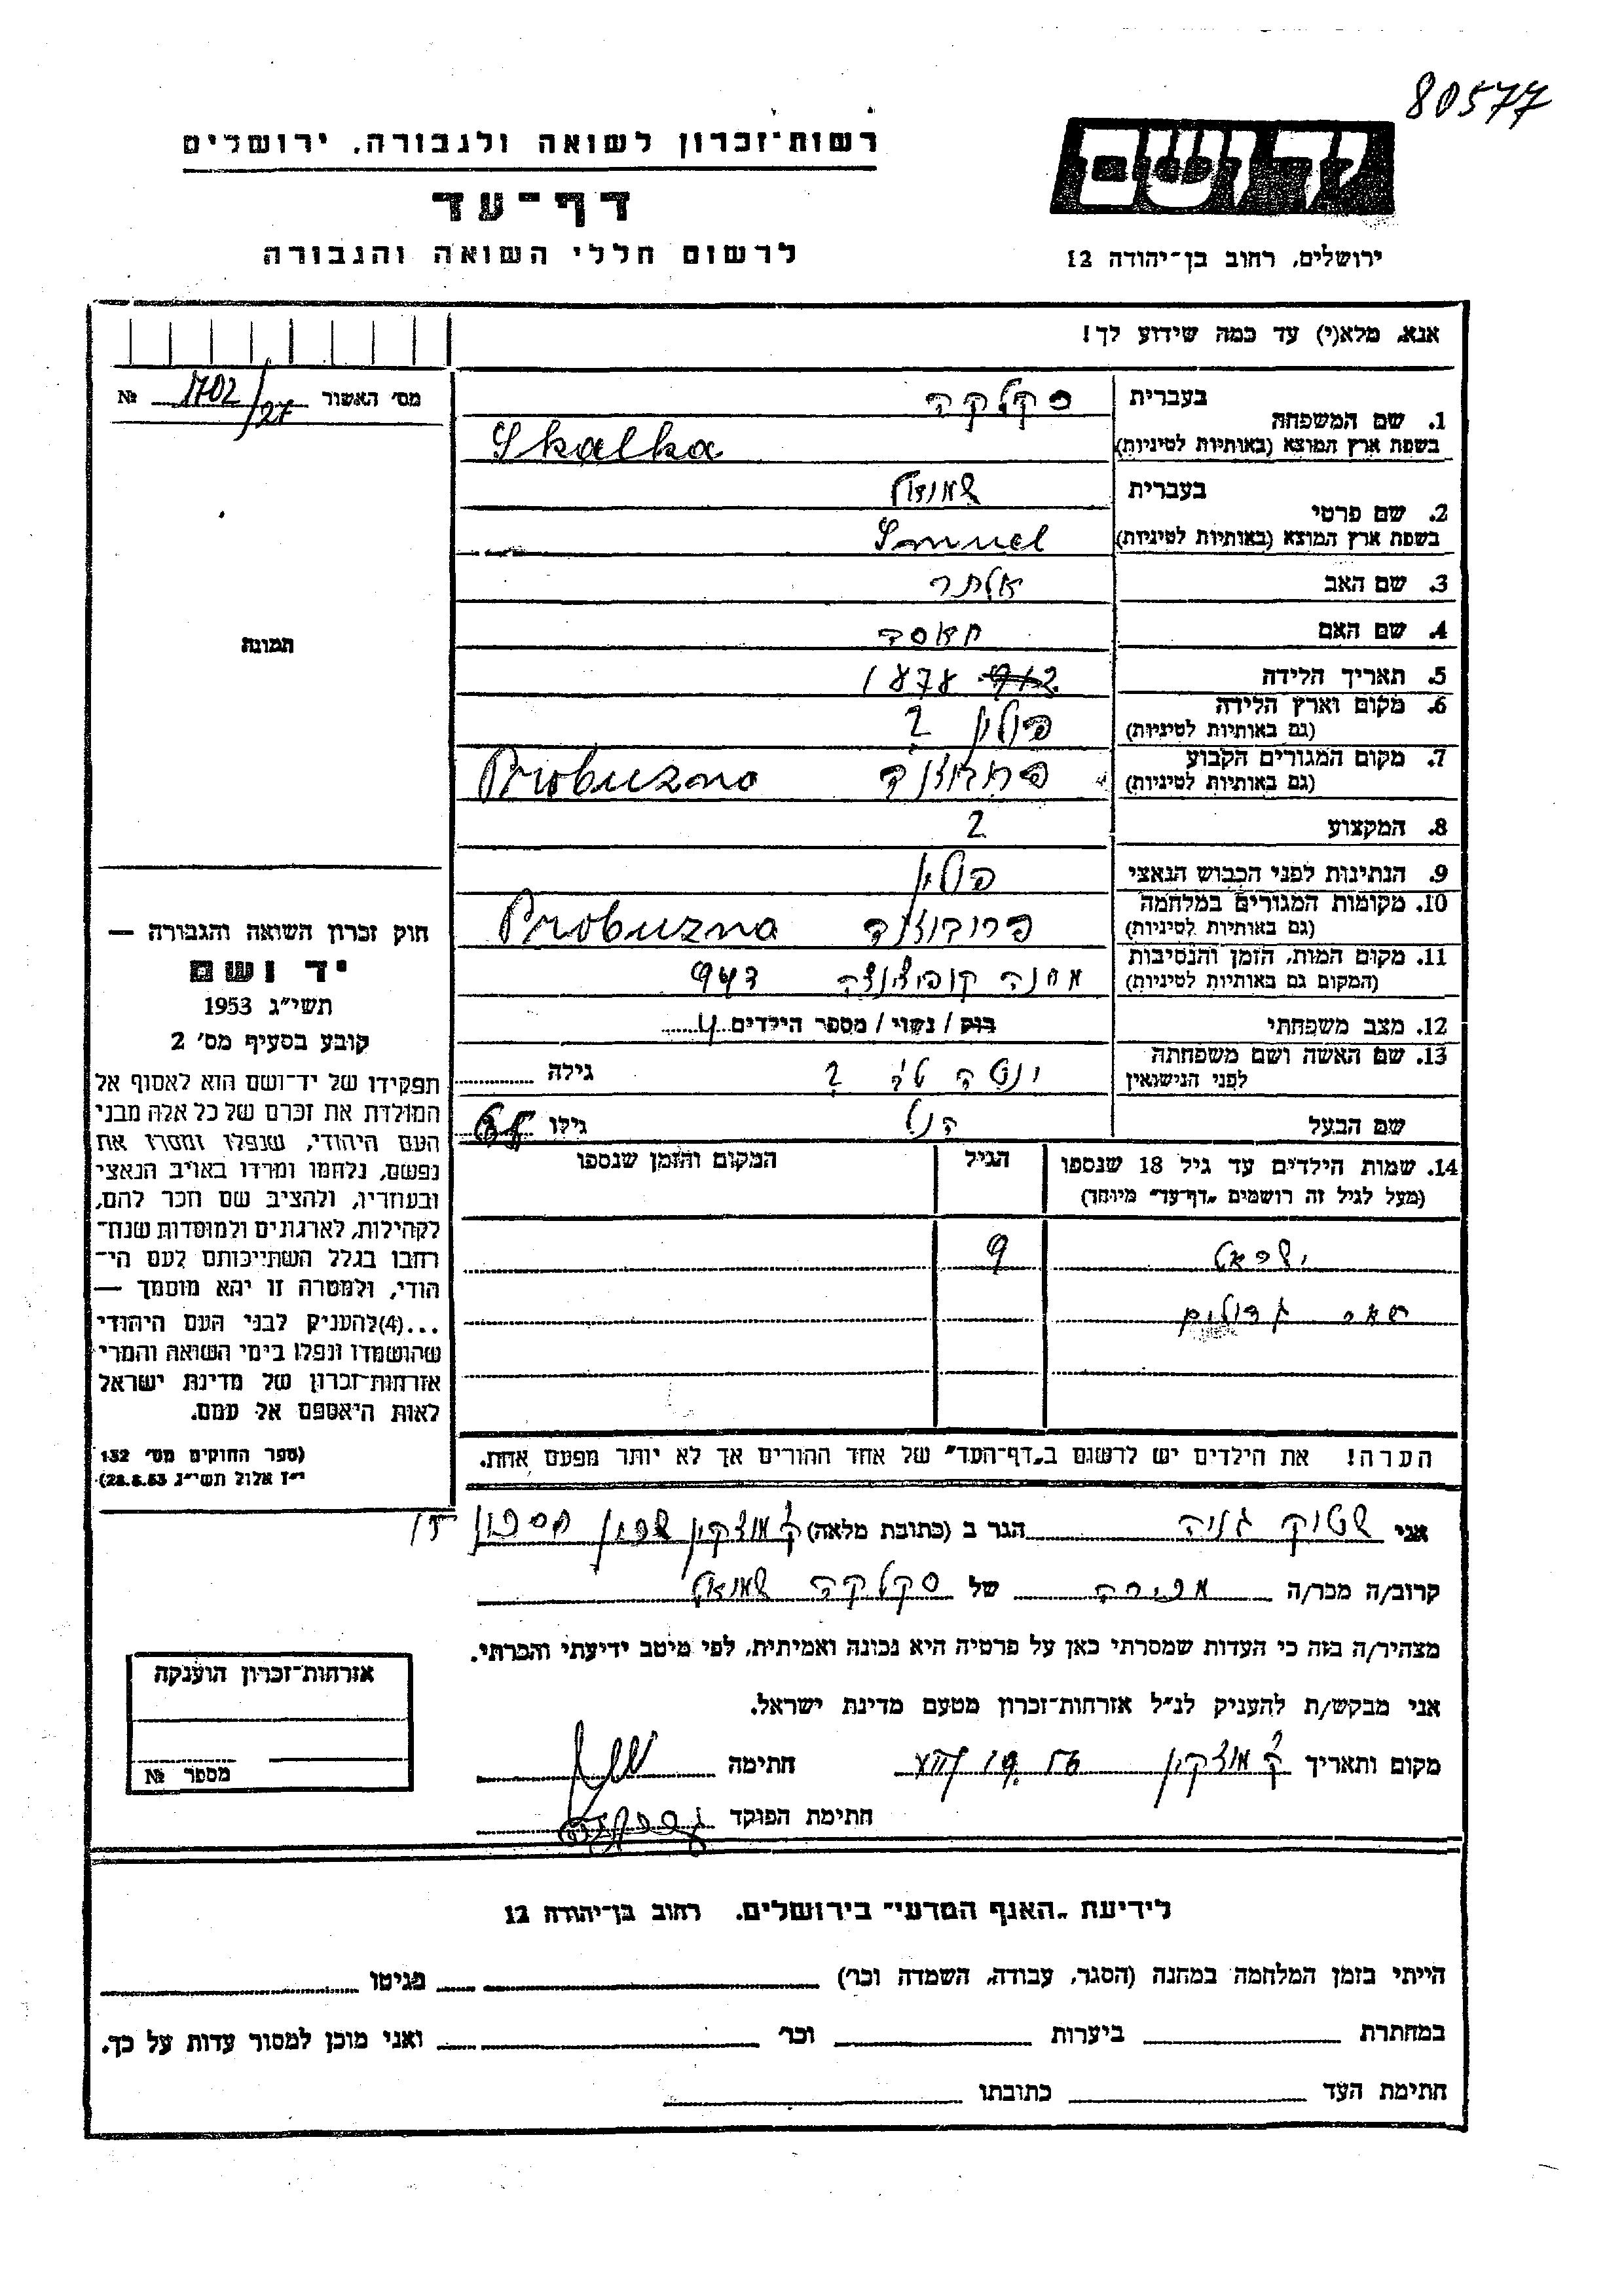 80577
יד ושם
רשות־זכרון לשואה ולגבורה, ירושלים
דף־עד
לרשום חללי השואה והגבורה
ירושלים, רחוב בן־יהודה 12
אנא, מלא(י) עד כמה שידוע לך!
מס' האשור 1702/27 №
תמונה
1. שם המשפחה
בעברית סקלקה
בשפת ארץ המוצא (באותיות לטיניות) Skalka
2. שם פרטי
בעברית שמואל
בשפת ארץ המוצא (באותיות לטיניות) Smuel
3. שם האב אלתר
4. שם האם
5. תאריך הלידה 1878
6. מקום וארץ הלידה פולין ?
(גם באותיות לטיניות)
7. מקום המגורים הקבוע Probuzno
(גם באותיות לטיניות)
8. המקצוע ?
9. הנתינות לפני הכבוש הנאצי פולין
10. מקומות המגורים במלחמה פרובוזנה Probuzna
(גם באותיות לטיניות)
11. מקום המות, הזמן והנסיבות מחנה 943
(המקום גם באותיות לטיניות)
12. מצב משפחתי רווק / נשוי / מספר הילדים 4
13. שם האשה ושם משפחתה
לפני הנישואין ? גילה
שם הבעל הנ"ל גילו 65
14. שמות הילדים עד גיל 18 שנספו הגיל המקום והזמן שנספו
(מעל לגיל זה רושמים „דף־עד" מיוחד)
ישראל 9
שאר גדולים
הערה! את הילדים יש לרשום ב„דף־העד" של אחד ההורים אך לא יותר מפעם אחת.
חוק זכרון השואה והגבורה —
יד ושם
תשי"ג 1953
קובע בסעיף מס' 2
תפקידו של יד־ושם הוא לאסוף אל
המולדת את זכרם של כל אלה מבני
העם היהודי, שנפלו ומסרו את
נפשם, נלחמו ומרדו באויב הנאצי
ובעוזריו, ולהציב שם וזכר להם,
לקהילות, לארגונים ולמוסדות שנח־
רבו בגלל השתייכותם לעם הי־
הודי, ולמטרה זו יהא מוסמך —
...(4) להעניק לבני העם היהודי
שהושמדו ונפלו בימי השואה והמרי
אזרחות־זכרון של מדינת ישראל
לאות היאספם אל עמם.
(ספר החוקים מס' 132
י"ז אלול תשי"ג 28.8.53)
אני שטוק גניה הגר ב (כתובת מלאה) ק. מוצקין שכון חסכון 15
קרוב/ה מכר/ה מכירה של סקלקה שמואל
מצהיר/ה בזה כי העדות שמסרתי כאן על פרטיה היא נכונה ואמיתית, לפי מיטב ידיעתי והכרתי.
אני מבקש/ת להעניק לנ"ל אזרחות־זכרון מטעם מדינת ישראל.
מקום ותאריך ק. מוצקין חתימה
חתימת הפוקד
אזרחות־זכרון הוענקה
מספר №
לידיעת „האגף המדעי" בירושלים, רחוב בן־יהודה 12
הייתי בזמן המלחמה במחנה (הסגר, עבודה, השמדה וכו') בגיטו
במחתרת ביערות וכו' ואני מוכן למסור עדות על כך.
חתימת העד כתובתו